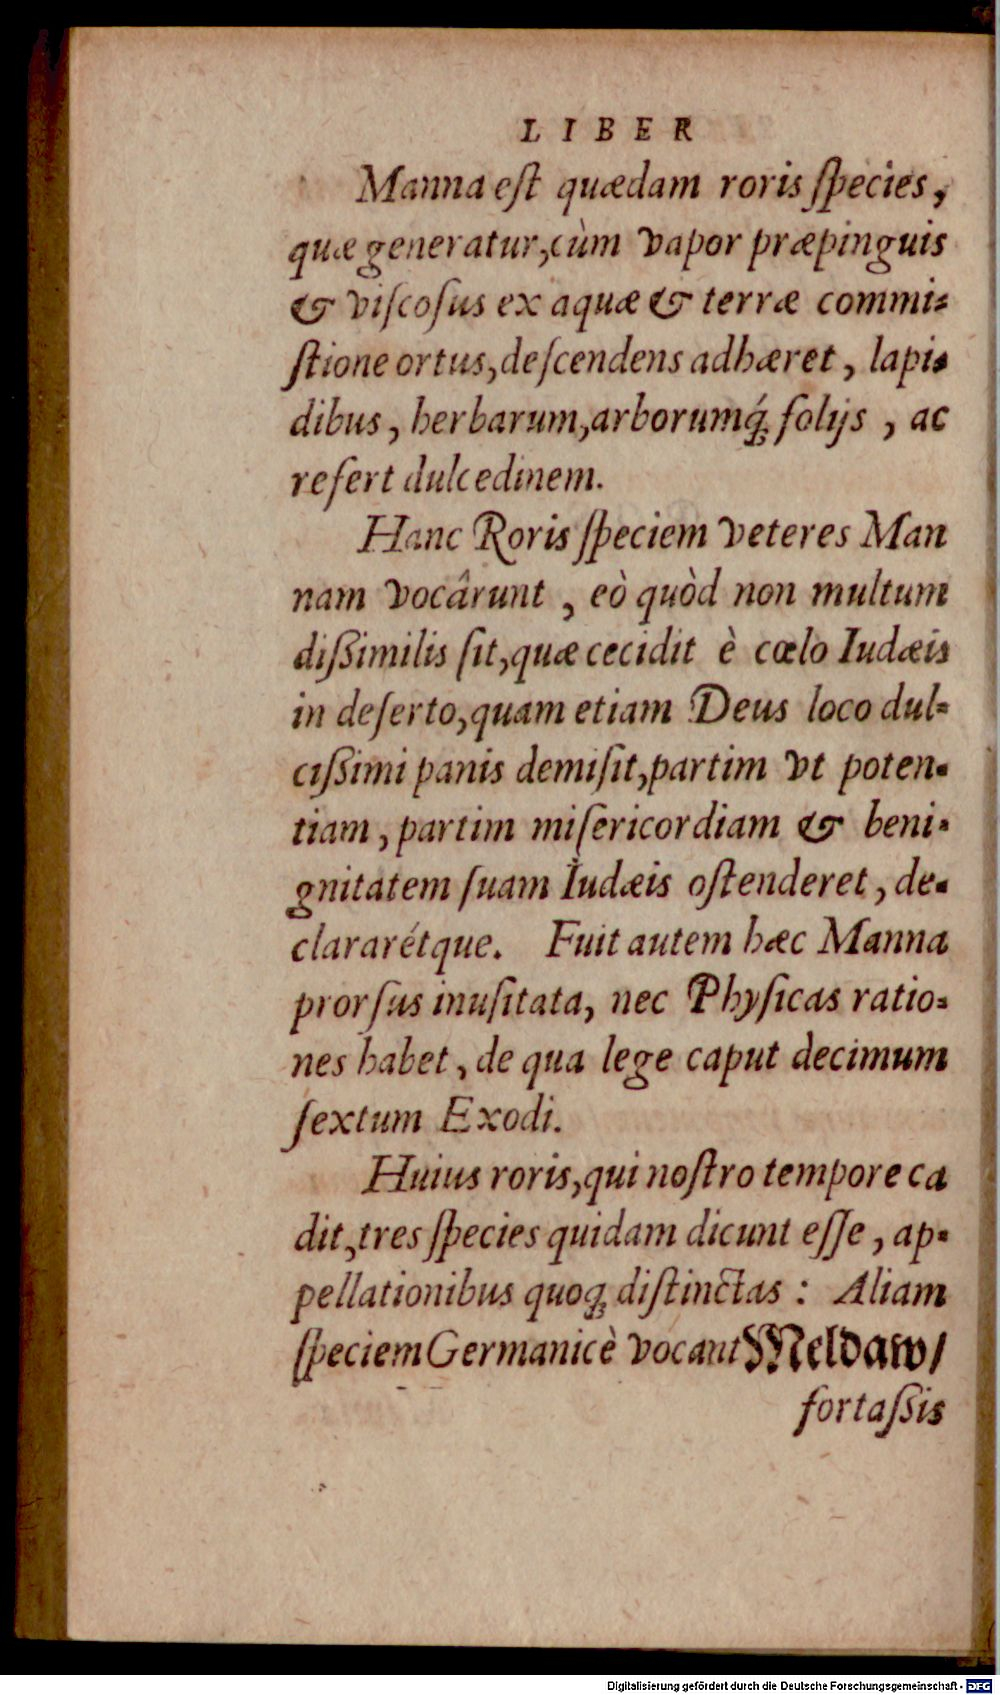 LIBER
Manna eſt quædam roris ſpecies,
quæ generatur, cùm vapor præpinguis
& viſcoſus ex aquæ & terræ commi-
ſtione ortus, deſcendens adhæret, lapi-
dibus, herbarum, arborumq́; folijs, ac
refert dulcedinem.
Hanc Roris ſpeciem veteres Man
nam vocârunt, eò quòd non multum
diſsimilis ſit, quæ cecidit è cœlo Iudæis
in deſerto, quam etiam Deus loco dul-
ciſsimi panis demiſit, partim vt poten-
tiam, partim miſericordiam & beni-
gnitatem ſuam Iudæis oſtenderet, de-
clararétque. Fuit autem hæc Manna
prorſus inuſitata, nec Phyſicas ratio-
nes habet, de qua lege caput decimum
ſextum Exodi.
Huius roris, qui noſtro tempore ca
dit, tres ſpecies quidam dicunt eſſe, ap-
pellationibus quoq; diſtinctas: Aliam
ſpeciem Germanicè vocant Meldaw/
fortaſsis
Digitalisierung gefördert durch die Deutsche Forschungsgemeinschaft - DFG